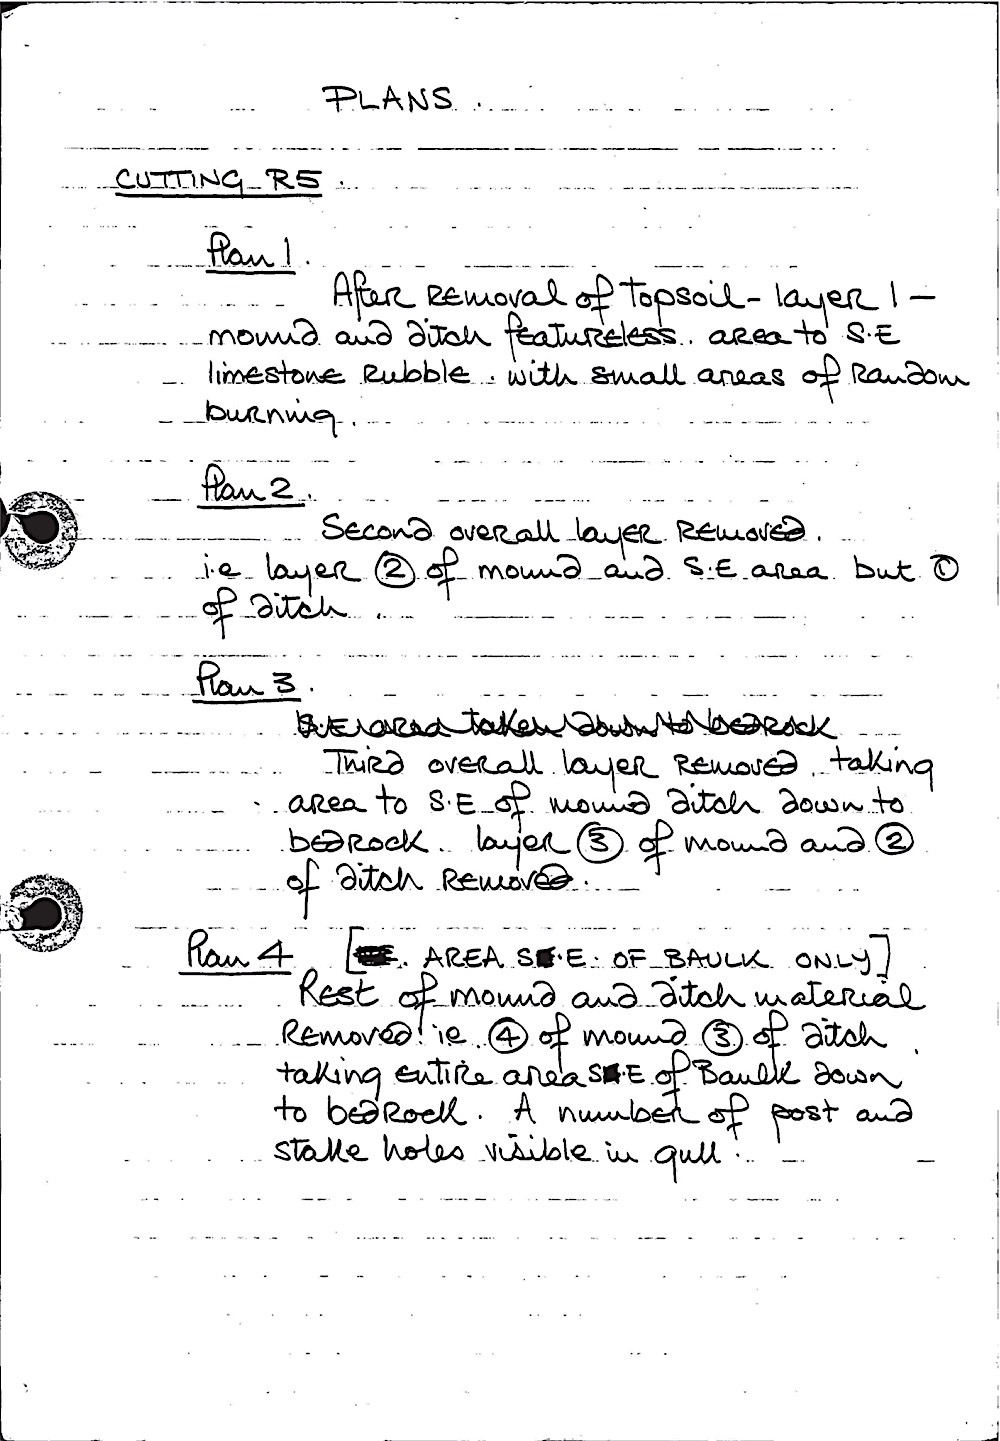 PLANS.
CUTTING R5.
Plan 1.
After removal of topsoil - layer 1 -
mound and ditch featureless. area to S.E
limestone rubble. with small areas of random
burning.
Plan 2.
Second overall layer removed.
i.e layer ② of mound and S.E area but ①
of ditch.
Plan 3.
S.E area taken down to bedrock
Third overall layer removed. taking
area to S.E of mound ditch down to
bedrock. layer ③ of mound and ②
of ditch removed.
Plan 4 [ . AREA S.E. OF BAULK ONLY]
Rest of mound and ditch material
removed. ie ④ of mound ③ of ditch
taking entire area S.E of Baulk down
to bedrock. A number of post and
stake holes visible in gull.